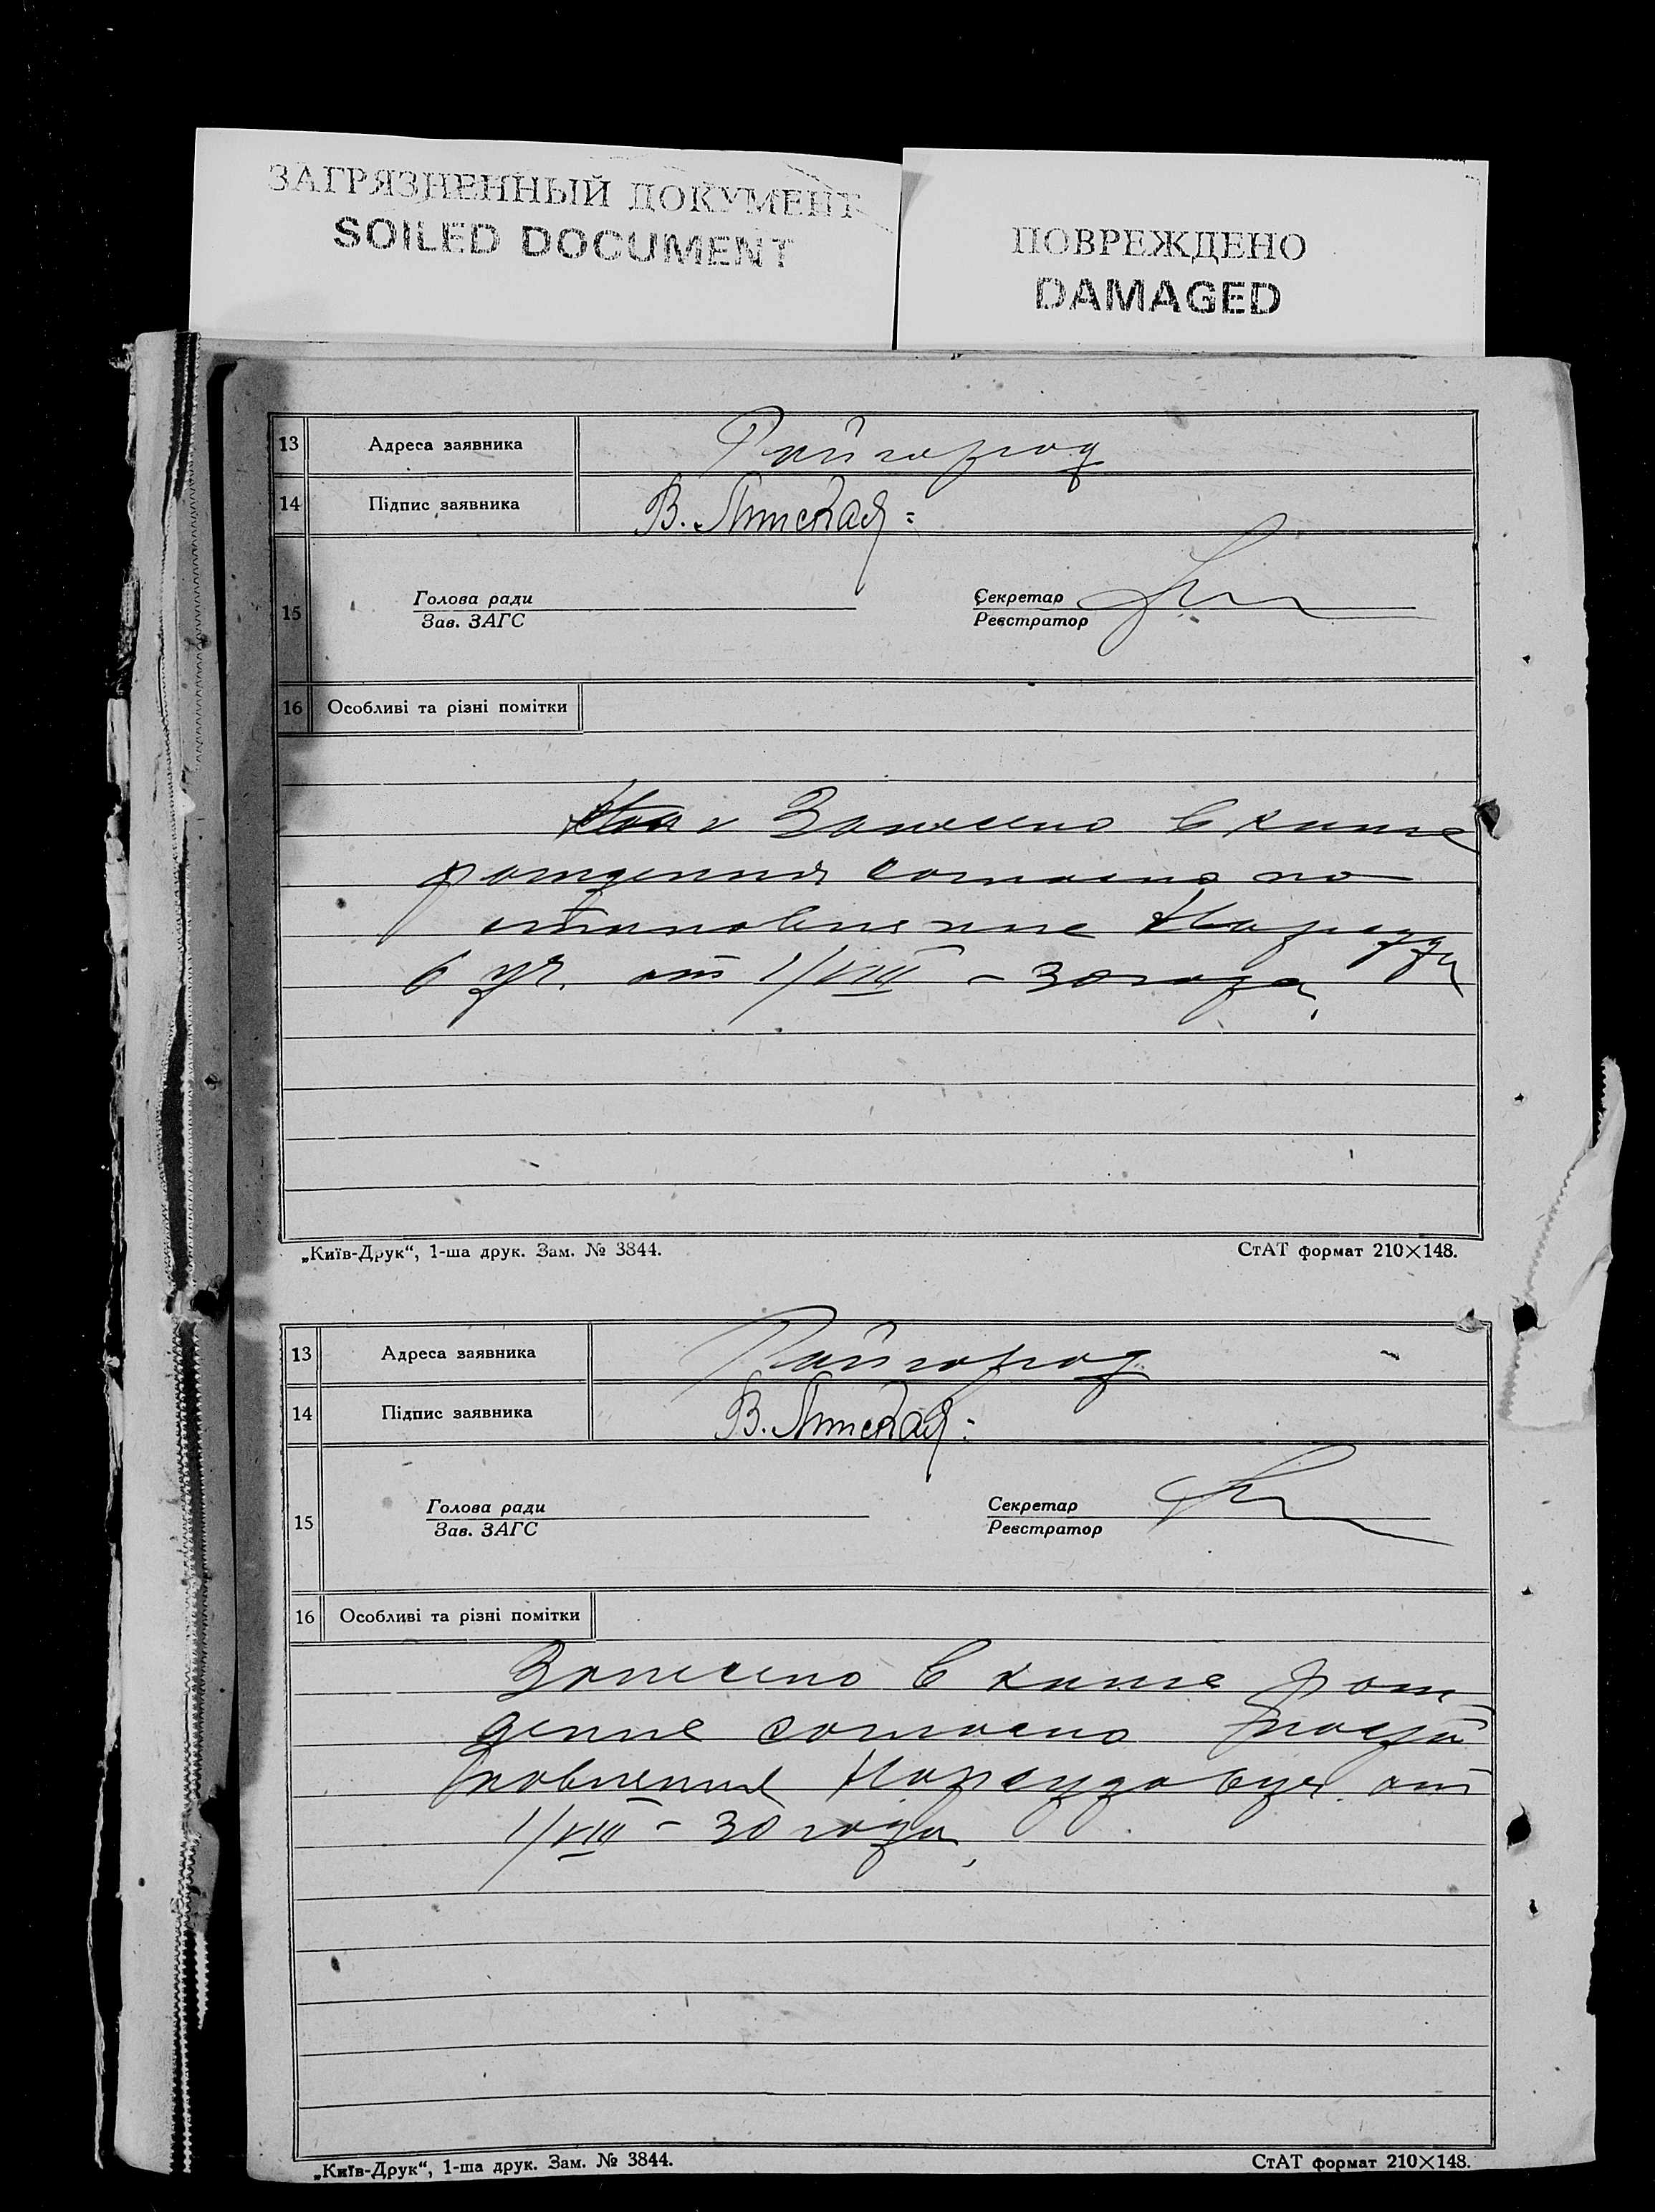 ЗАГРЯЗНЕННЫЙ ДОКУМЕНТ
SOILED DOCUMENT
ПОВРЕЖДЕНО
DAMAGED
13 Адреса заявника Райгород
14 Підпис заявника В. Литская
Голова ради Секретар
15
Зав. ЗАГС Реєстратор
16 Особливі та різні помітки
Занесено в книге
рождения согласно по
становление Нарсуда
6 уч. от 1/VIII - 30 года
„Київ-Друк“, 1-ша друк. Зам. № 3844. СтАТ формат 210×148.
13 Адреса заявника Райгород
14 Підпис заявника В. Литская
Голова ради Секретар
15
Зав. ЗАГС Реєстратор
16 Особливі та різні помітки
Занесено в книге рож-
дение согласно поста
новление Нарсуда 6 уч. от
1/VIII - 30 года
„Київ-Друк“, 1-ша друк. Зам. № 3844. СтАТ формат 210×148.